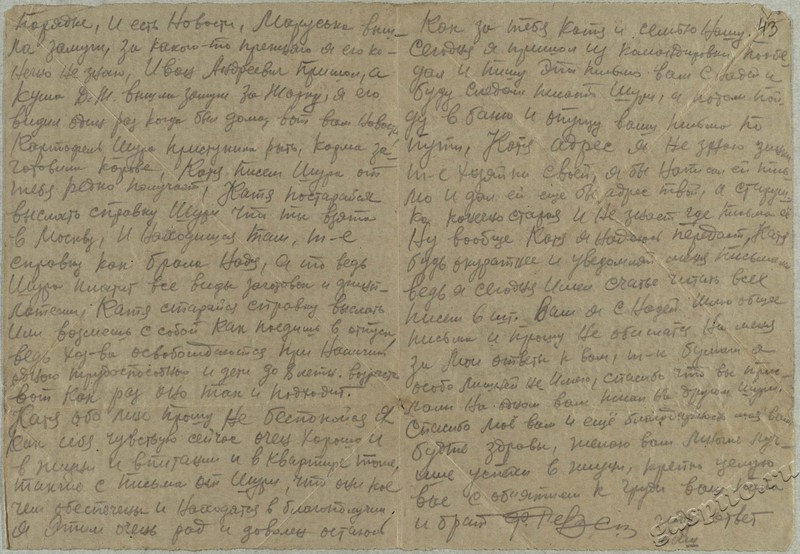 порядке, И есть Новости, Маруська выш-
ла замуж, за какого-то приезжего я его ко-
нечно не знаю, Иван Андреевич пришол, а
кума Д.М. вышла замуж за Жорку, я его
видил один раз когда был дома, вот вам Новости
Картофель Шура приступила рыть, корма за-
готовила корове, Катя писем Шура от
тебя редко получает, Катя постарайся
выслать справку Шуре что ты взята
в Москву, и находишся там, т-е
справку как брала Надя, а то ведь
Шура платит все виды заготовок и
Катя старайся справку выслать
или возмешь с собой как поедишь в отпуск,
ведь хоз-ва освобождаются при наличии
одного трудоспособном и дети до 8 лет. возраста
вот как раз оно так и подходит.
Катя обо мне прошу не беспокойся я
как себя чувствую сейчас очен хорошо и
в жизни и в питании и в квартире тоже,
также с письма от Шуры, что они кое
чем обеспечены и находятся в благополучии.
я этим очень рад и доволен остаюсь
43
Как за тебя Катя и семью Нашу.
Сегодня я пришол из командировки пообе-
дал и пишу это письмо вам с Надей и
буду следом писать Шуре, а потом пой-
ду в баню и опущу ваши письма по
пути, Катя адрес я не знаю
т-с хозяйки своей, я бы написал ей пись-
мо и дал ей еще бы адрес твой, а старуш-
ка конечно старая и не знает где письма
Ну вообще Катя я надеюсь передаст, Катя
будь акуратнее и уведомляй меня письмами
ведь я сегодня имел счастье читать всех
писем 6 шт. Вам я с Надей шлю общее
письмо и прошу не обижатся на меня
за мои ответы к вам, т-к бумаги я
особо лишней не имею, спасибо что вы прис-
лали на одном вам пишу на другом Шуре.
Спасибо моё вам и ещё благодарность моя вам
будьте здоровы, желаю вам лучше луч-
шие успехи в жизни, крепко целую
вас с обнятием к груди ваш
и брат жду ответ
gaspiko.ru